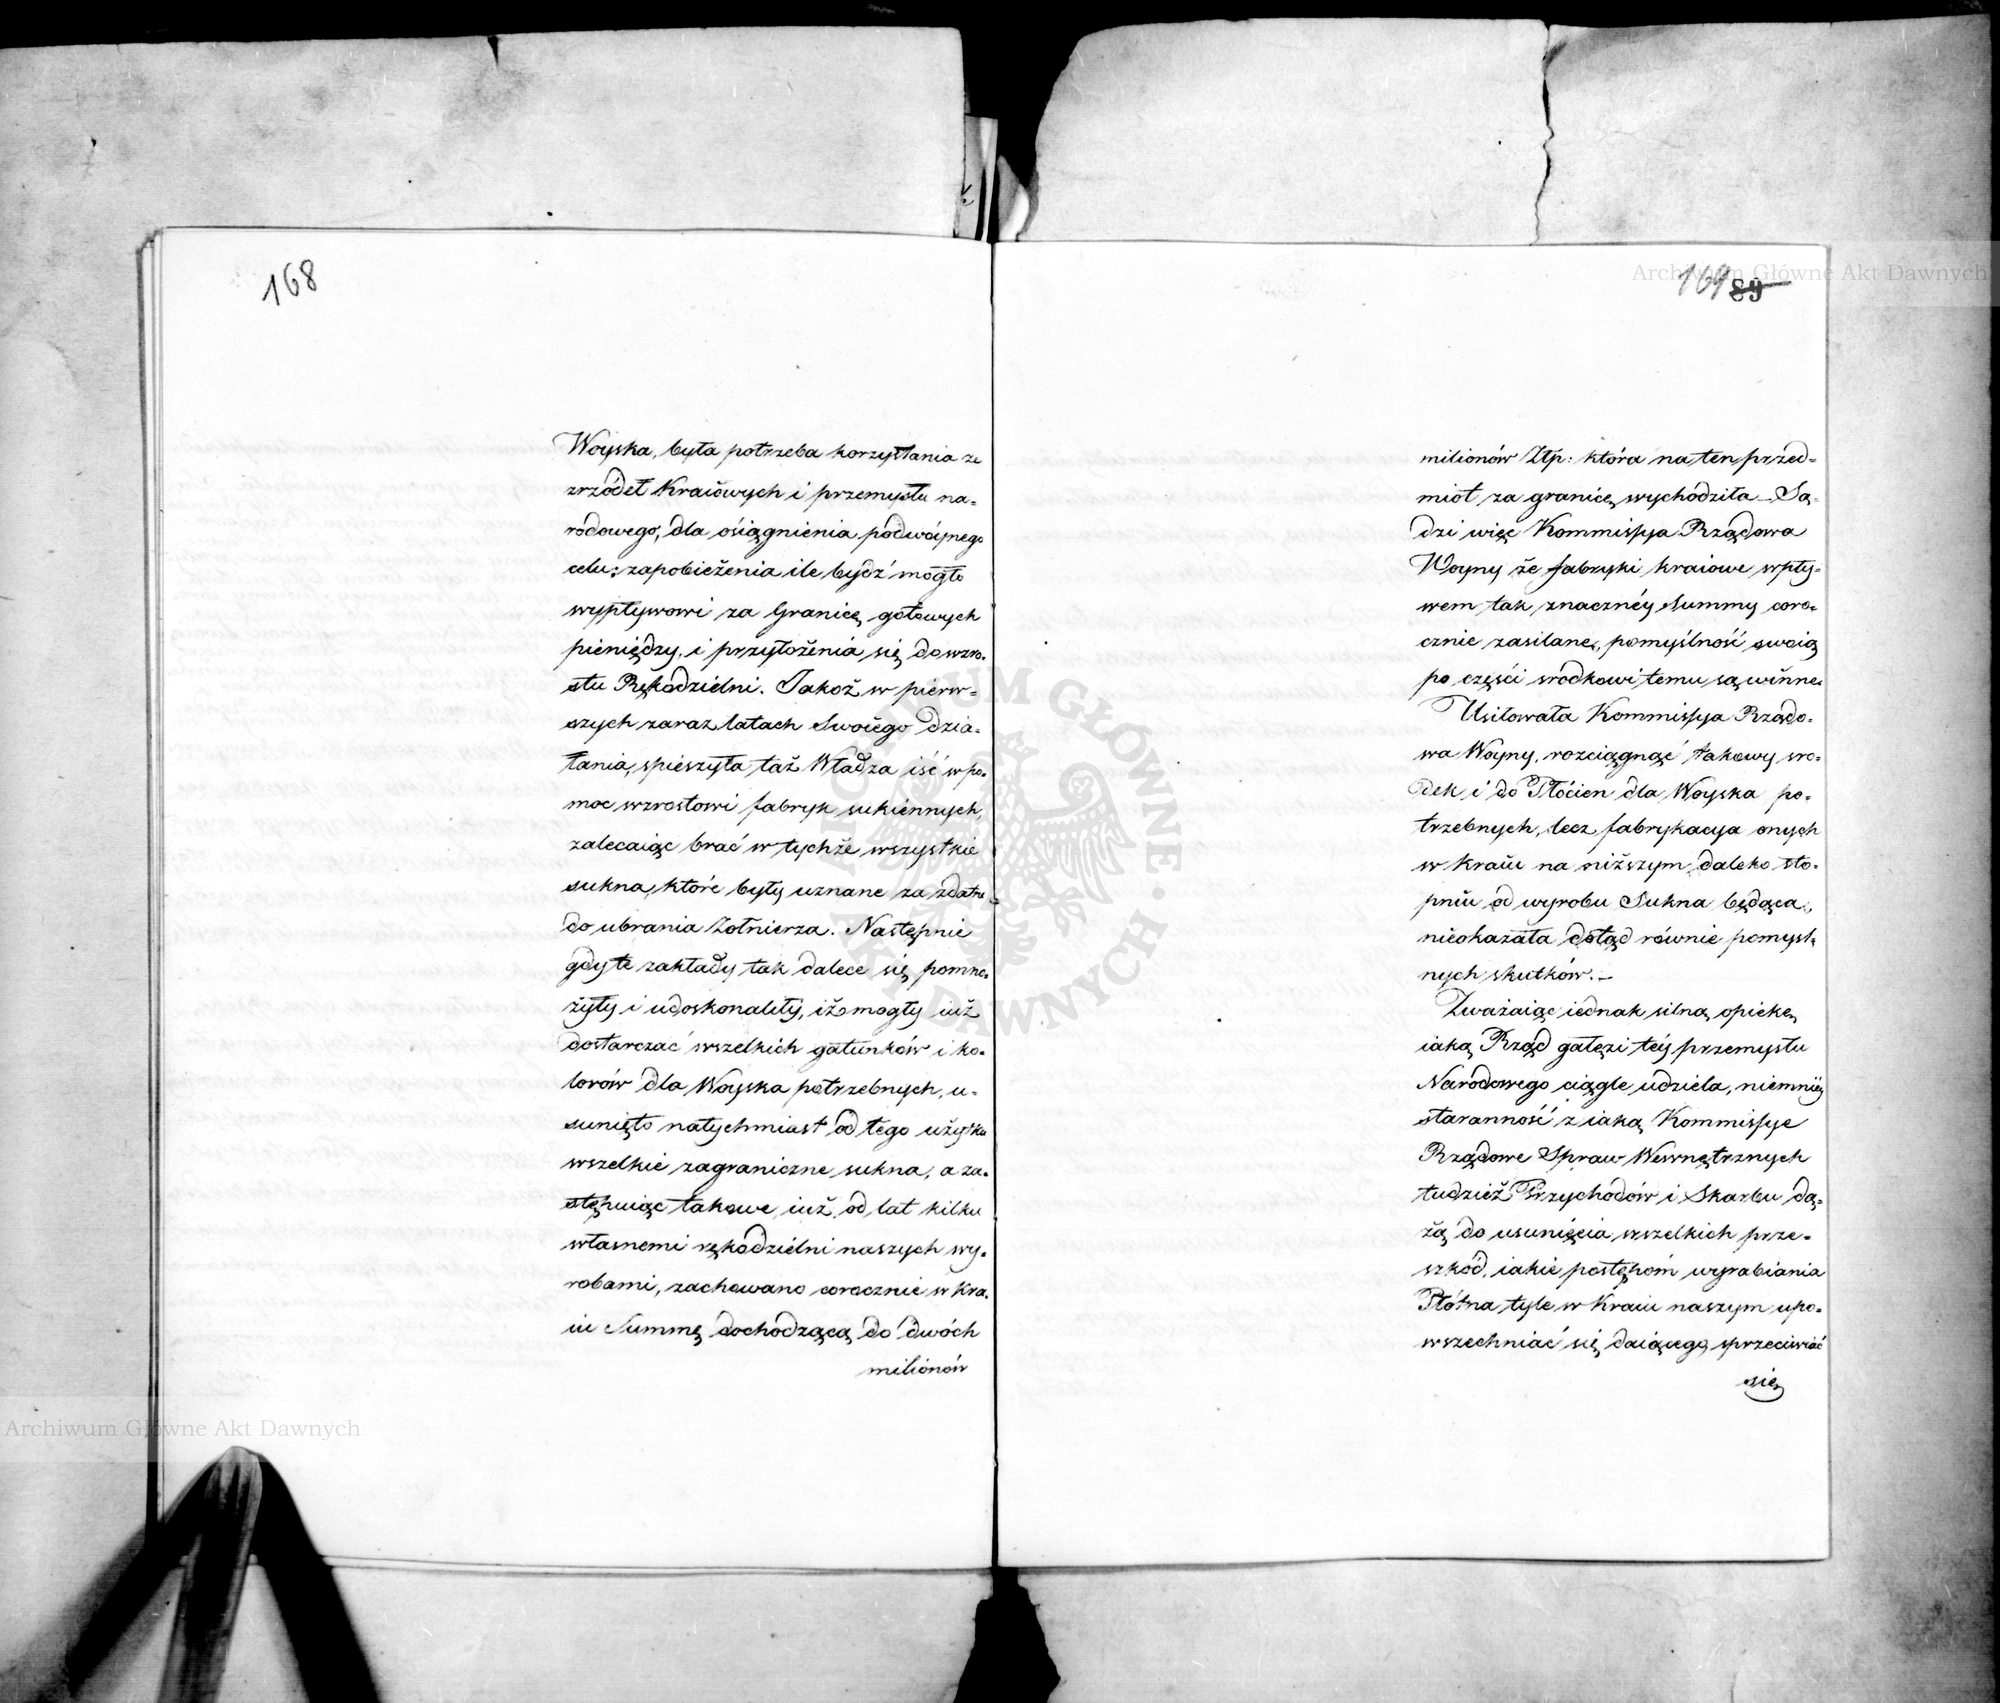 168
Woyska, była potrzeba korzystania ze
zrzódeł Kraiowych i przemysłu na-
rodowego, dla osiągnienia podwóynego
celu: zapobieżenia ile bydź mogło
wypływowi za Granicę gotowych
pieniędzy, i przyłożenia się do wzro-
stu Rękodzielni. Jakoż w pierw-
szych zaraz latach Swoiego dzia-
łania, spieszyła taż Władza iść w po-
moc wzrostowi fabryk sukiennych,
zalecaiąc brać w tychże wszystkie
sukna, które były uznane za zdatne
do ubrania Żołnierza. Następnie
gdy te zakłady tak dalece się pomno-
żyły i udoskonaliły, iż mogły iuż
dostarczać wszelkich gatunków i ko-
lorów dla Woyska potrzebnych, u-
sunięto natychmiast od tego użytku
wszelkie zagraniczne sukna, a za-
stępuiąc takowe iuż od lat kilku
własnemi rękodzielni naszych wy-
robami, zachowano corocznie w Kra-
iu Summę dochodzącą do dwóch
milionów
169 89
milionów Złp: która na ten przed-
miot za granicę wychodziła – Są-
dzi więc Kommissya Rządowa
Woyny że fabryki kraiowe wpły-
wem tak znacznéy Summy coro-
cznie zasilane, pomyślność swoią
po części srodkowi temu są winne.
Usiłowała Kommissya Rządo-
wa Woyny, rozciągnąć takowy sro-
dek i do Płócien dla Woyska po-
trzebnych, lecz fabrykacya onych
w Kraiu na niższym daleko sto-
pniu od wyrobu Sukna będąca,
nieokazała dotąd równie pomyśl-
nych skutków. –
Zważaiąc iednak silną opiekę
iaką Rząd gałęzi téy przemysłu
Narodowego ciągle udziela, niemniéy
staranność z iaką Kommissye
Rządowe Spraw Wewnętrznych
tudzież Przychodów i Skarbu dą-
żą do usunięcia wszelkich prze-
szkód, iakie postępom wyrabiania
Płótna tyle w Kraiu naszym upo-
wszechniać się daiącego, sprzeciwiać
się
Archiwum Główne Akt Dawnych
Archiwum Główne Akt Dawnych
ARCHIWUM GŁÓWNE AKT DAWNYCH